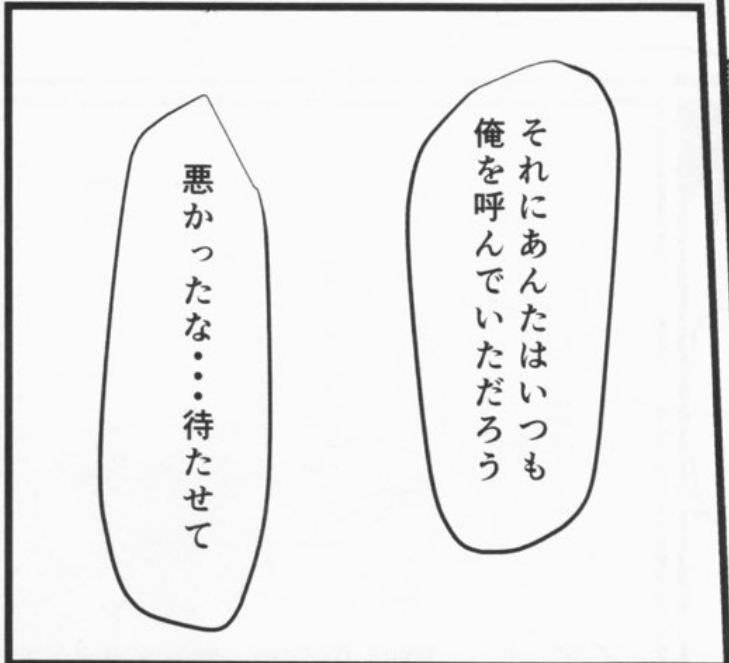 それにあんたはいつも
俺を呼んでいただろう
悪かったな・・・待たせて